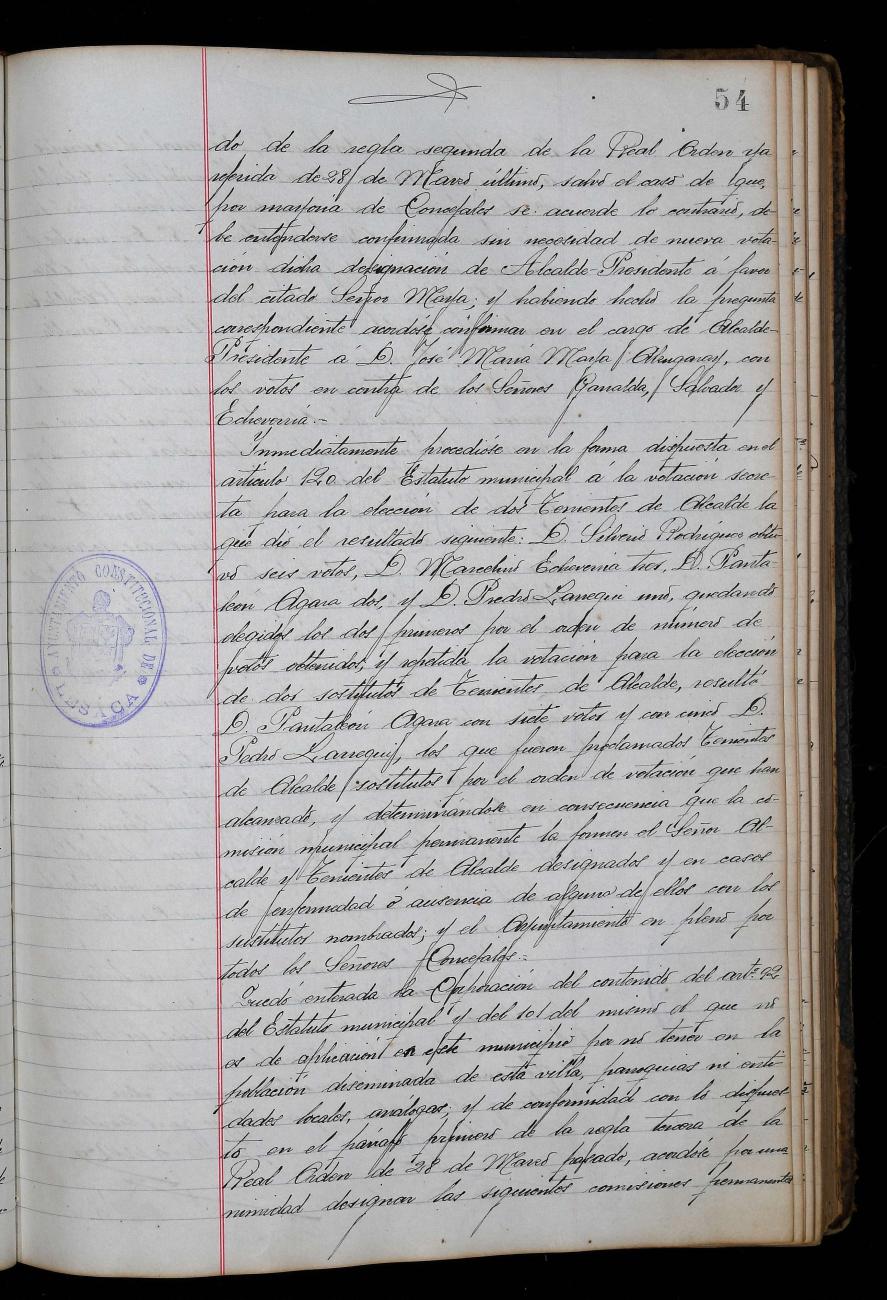 54
do de la regla segunda de la Real Orden ya
referida de 28 de Marzo último, salvo el caso de que,
por mayoria de Concejales se acuerde lo contrario, de-
be entenderse confirmada sin necesidad de nueva vota-
ción dicha designación de Alcalde-Presidente á favor
del citado Señor Maya; y habiendo hecho la pregunta
correspondiente acordóse confirmar en el cargo de Alcalde-
Presidente á D. José Maria Maya Alzugaray, con
los votos en contra de los Señores Ganalda, Salvador y
Echeverria.-
Inmediatamente procedióse en la forma dispuesta en el
artículo 120 del Estatuto municipal á la votación secre-
ta para la elección de dos Tenientes de Alcalde la
que dió el resultado siguiente: D. Silverio Rodriguez obtu-
vo seis votos, D. Marcelino Echeverria tres, D. Panta-
león Agara dos, y D. Pedro Larregui uno, quedando
elegidos los dos primeros por el orden de número de
votos obtenidos; y repetida la votacion para la elección
de dos sostitutos de Tenientes de Alcalde, resultó
D. Pantaleon Agara con siete votos y con cinco D.
Pedro Larregui, los que fueron proclamados Tenientes
de Alcalde sostitutos por el orden de votación que han
alcanzado, y determinándose en consecuencia que la co-
misión municipal permanente la formen el Señor Al-
calde y Tenientes de Alcalde designados y en casos
de enfermedad ó ausencia de alguno de ellos con los
sustitutos nombrados; y el Ayuntamiento en pleno por
todos los Señores Concejales.-
Quedó enterada la Corporación del contenido del artº. 92
del Estatuto municipal y del 101 del mismo el que no
es de aplicación en este municipio por no tener en la
población diseminada de esta villa, parroquias ni enti-
dades locales, análogas; y de conformidad con lo dispues-
to en el párrafo primero de la regla tercera de la
Real Orden de 28 de Marzo pasado, acordóse por una-
nimidad designar las siguientes comisiones permanentes
AYUNTAMIENTO CONSTITUCIONAL DE
LESACA